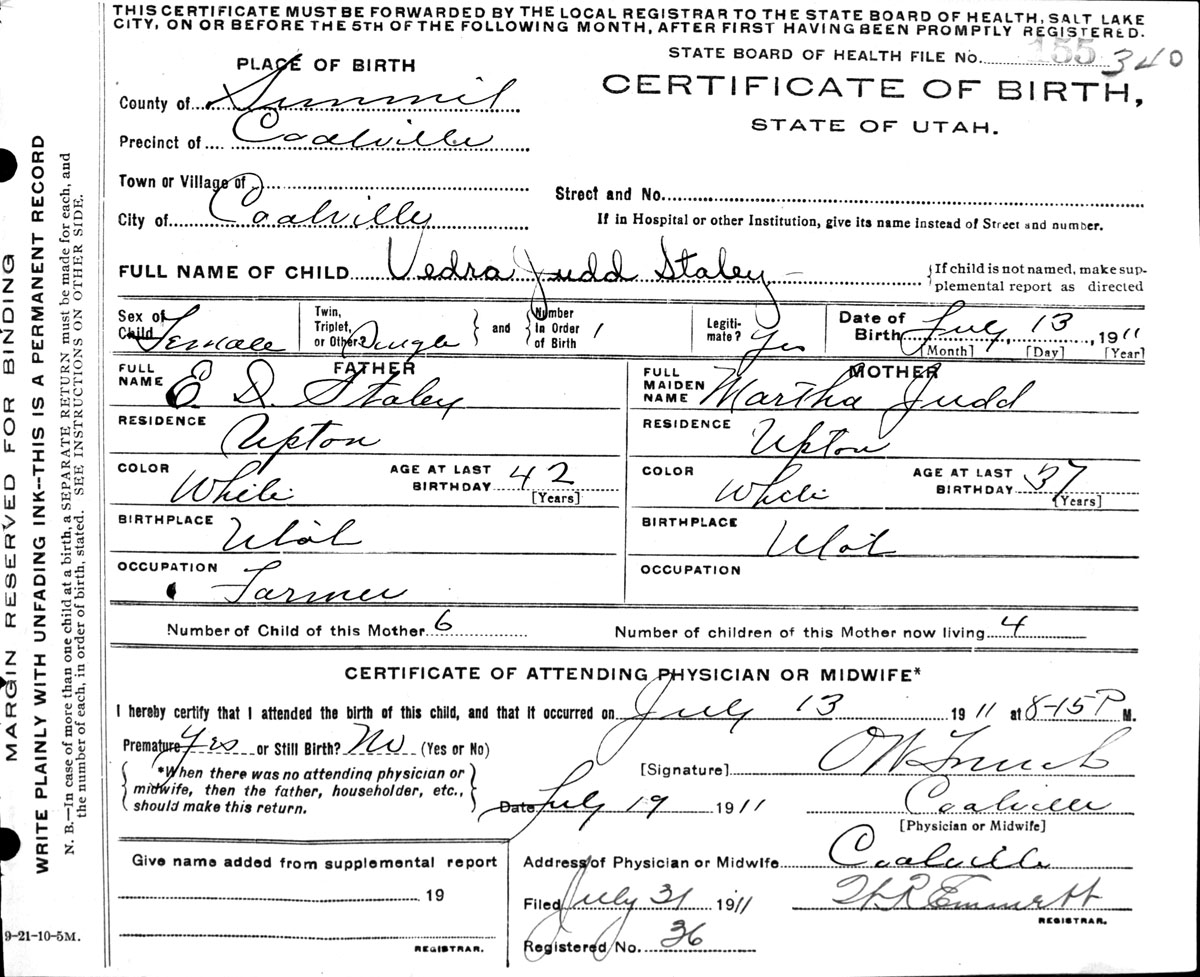 THIS CERTIFICATE MUST BE FORWARDED BY THE LOCAL REGISTRAR TO THE STATE BOARD OF HEALTH, SALT LAKE
CITY, ON OR BEFORE THE 5TH OF THE FOLLOWING MONTH, AFTER FIRST HAVING BEEN PROMPTLY REGISTERED.
STATE BOARD OF HEALTH FILE No. 155 340
PLACE OF BIRTH
CERTIFICATE OF BIRTH,
STATE OF UTAH.
County of Summit
Precinct of Coalville
Town or Village of
Street and No.
City of Coalville
If in Hospital or other Institution, give its name instead of Street and number.
FULL NAME OF CHILD Vedra Judd Staley
If child is not named, make sup-
plemental report as directed
Sex of Child Female
Twin, Triplet, or Other? Single and Number in Order of Birth 1
Legiti-mate? Yes
Date of Birth July 13, 1911
[Month] [Day] [Year]
FATHER
FULL NAME E D Staley
MOTHER
FULL MAIDEN NAME Martha Judd
RESIDENCE Upton
RESIDENCE Upton
COLOR White AGE AT LAST BIRTHDAY 42 [Years]
COLOR White AGE AT LAST BIRTHDAY 37 [Years]
BIRTHPLACE Utah
BIRTHPLACE Utah
OCCUPATION Farmer
OCCUPATION
Number of Child of this Mother 6 Number of children of this Mother now living 4
CERTIFICATE OF ATTENDING PHYSICIAN OR MIDWIFE*
I hereby certify that I attended the birth of this child, and that it occurred on July 13 1911 at 8-15 P M.
Premature Yes or Still Birth? No (Yes or No)
*When there was no attending physician or
midwife, then the father, householder, etc.,
should make this return.
[Signature]
Date July 19 1911 Coalville
[Physician or Midwife]
Give name added from supplemental report
19
REGISTRAR.
Address of Physician or Midwife Coalville
Filed July 31 1911 Emmett
REGISTRAR.
Registered No. 36
9-21-10-5M.
MARGIN RESERVED FOR BINDING
WRITE PLAINLY WITH UNFADING INK--THIS IS A PERMANENT RECORD
N. B.—In case of more than one child at a birth, a SEPARATE RETURN must be made for each, and
the number of each, in order of birth, stated. SEE INSTRUCTIONS ON OTHER SIDE.